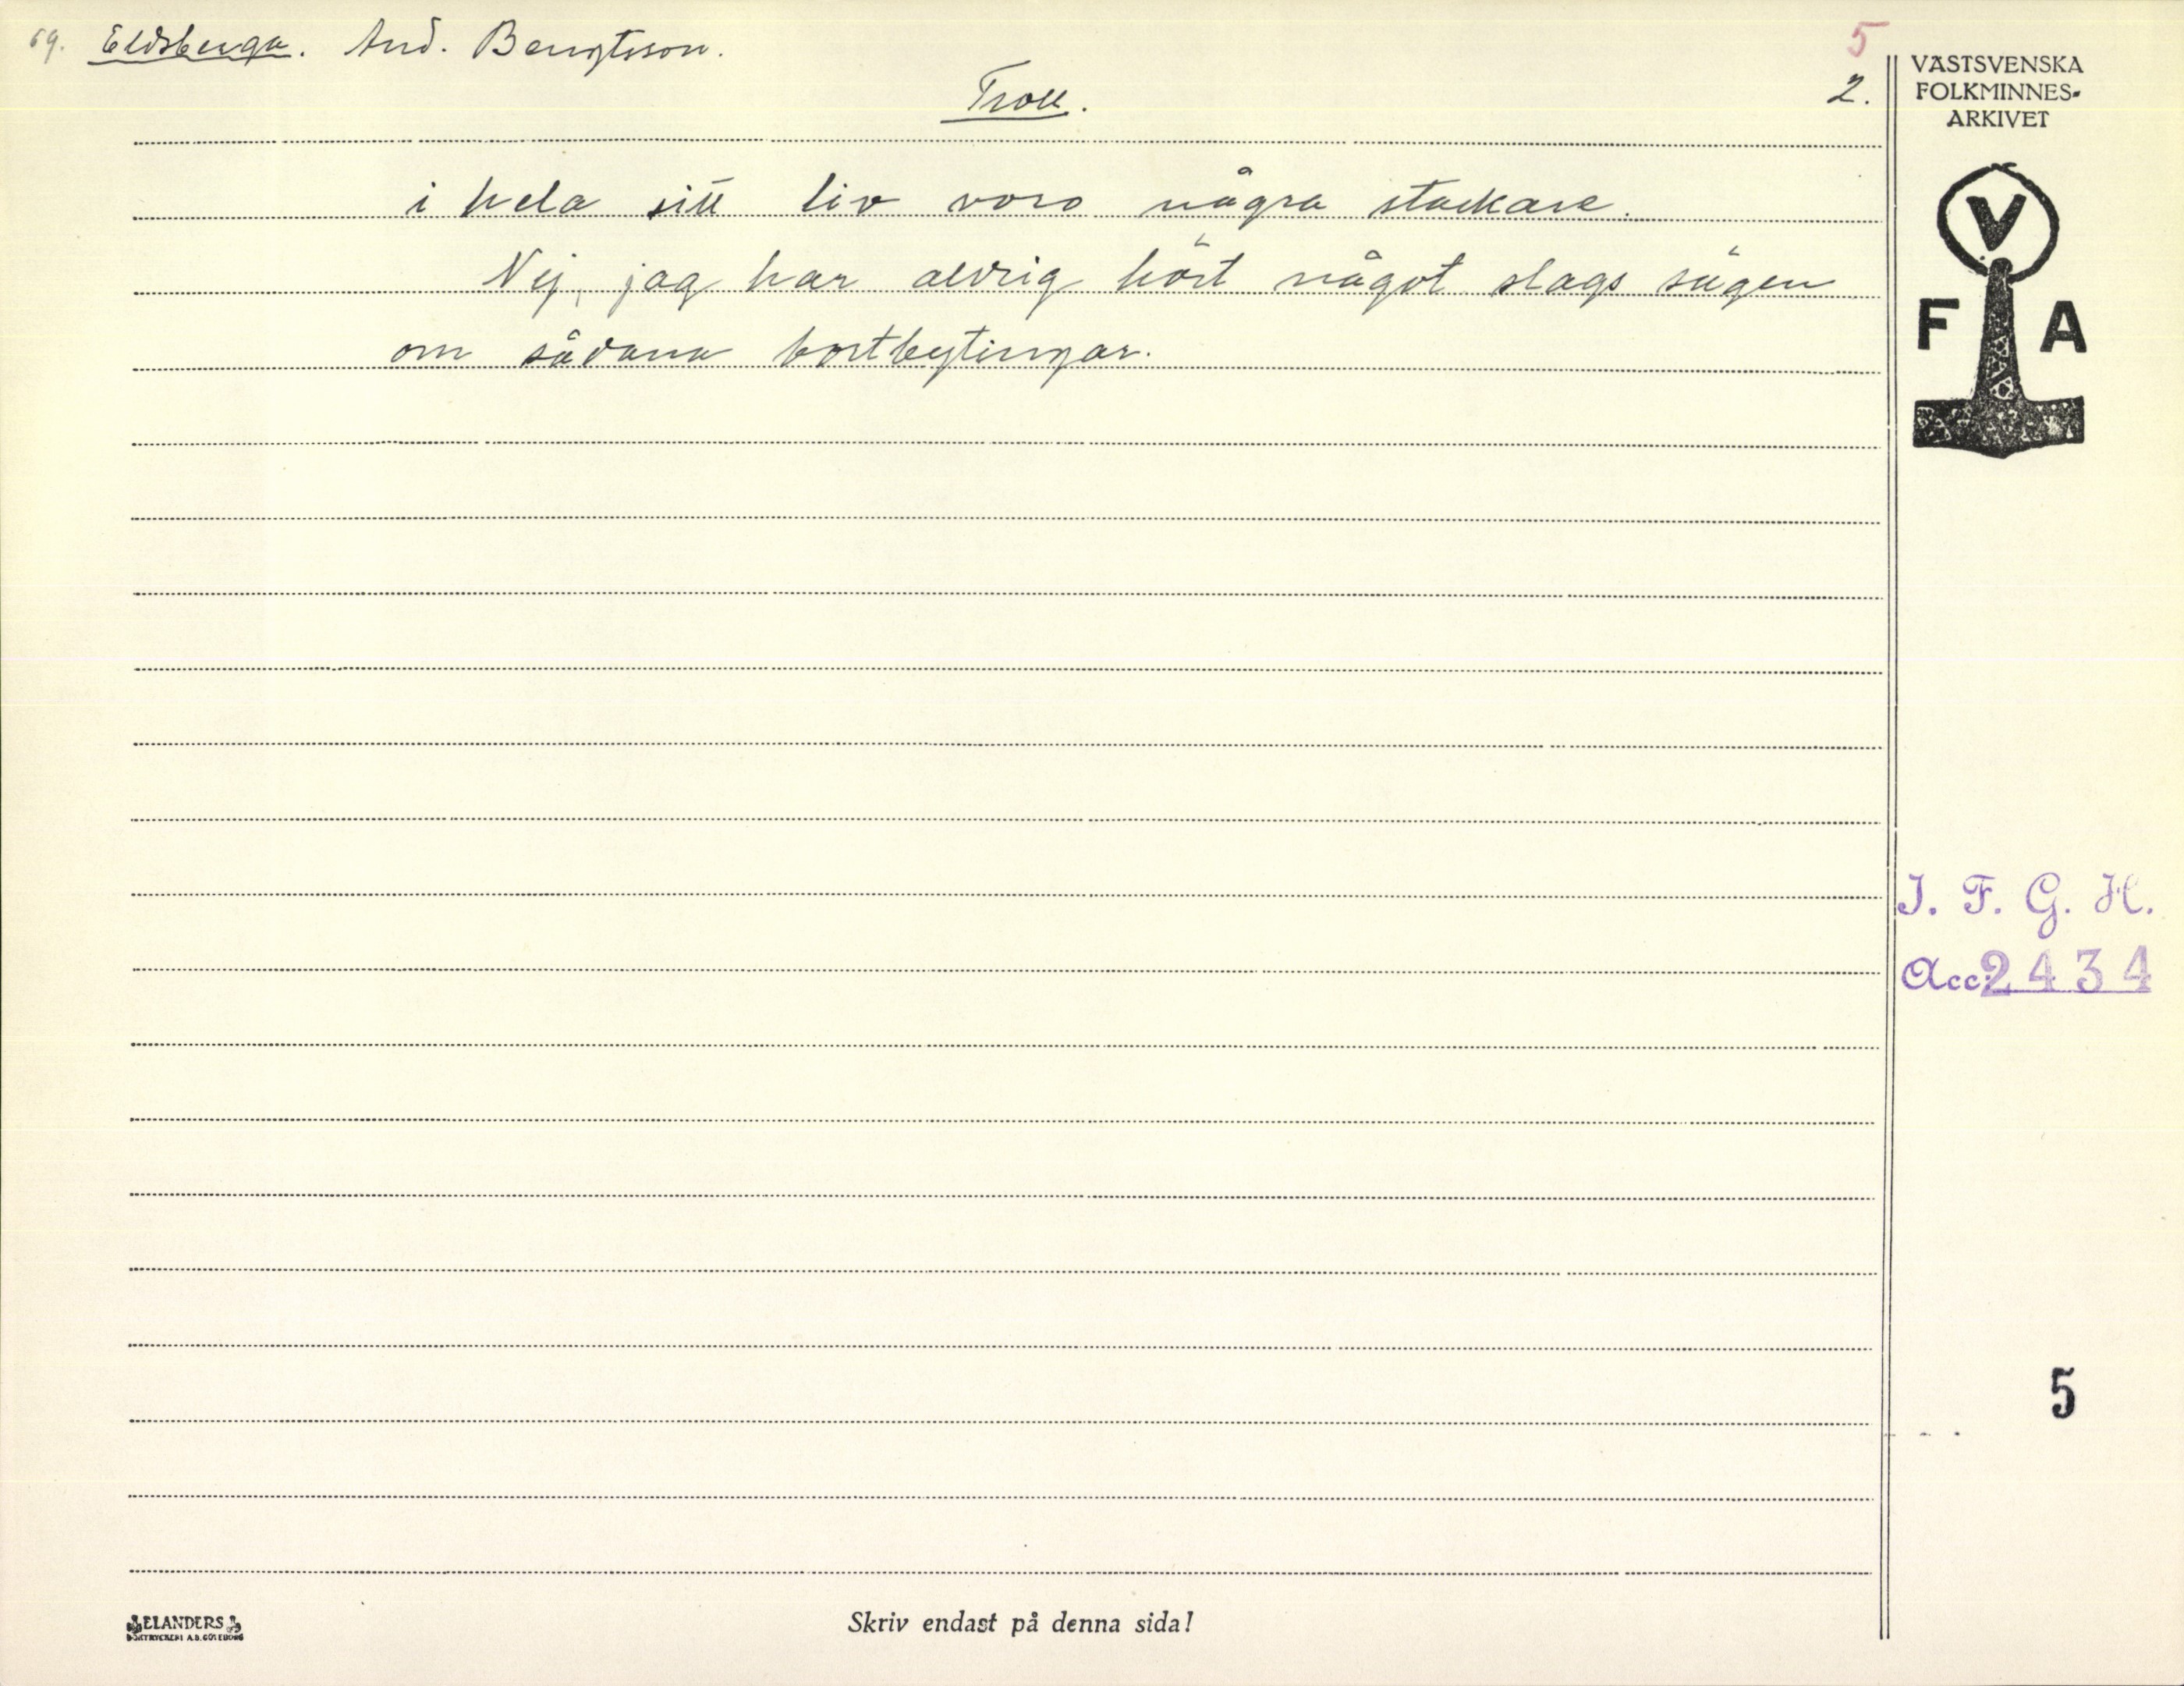 69. Eldsberga. And. Bengtsson.
5
Troll.
2.
i hela sitt liv voro några stackare.
Nej, jag har aldrig hört något slags sägen
om sådana bortbytingar.
VÄSTSVENSKA
FOLKMINNES-
ARKIVET
V
F A
I. F. G. H.
Acc. 2434
5
ELANDERS
BOKTRYCKERI A.B. GÖTEBORG
Skriv endast på denna sida!